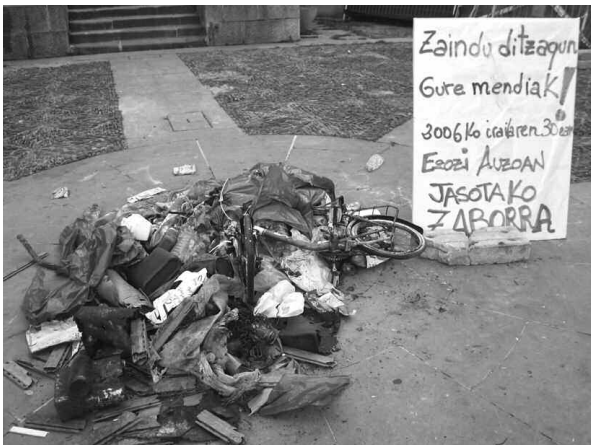 Zaindu ditzagun
Gure mendiak!
3006Ko irailaren 30ean
Egozi Auzoan
JASOTAKO
ZABORRA